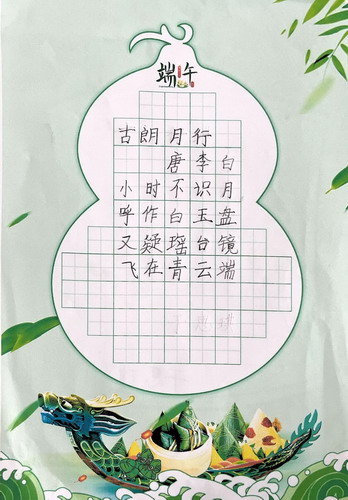 端午
古朗月行
唐李白
小时不识月
呼作白玉盘
又疑瑶台镜
飞在青云端